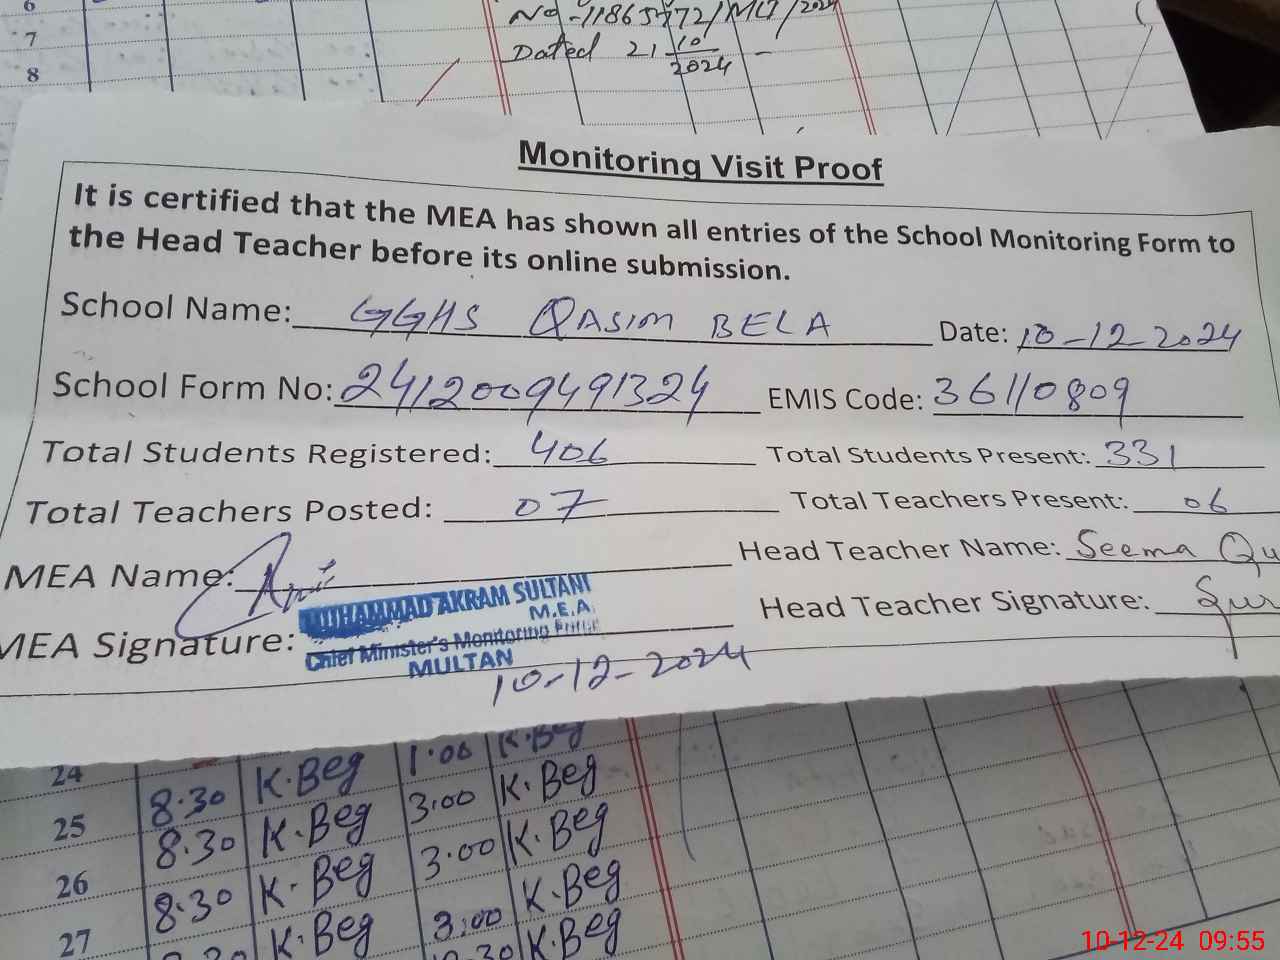 6
7
8
No-11865472/MU/2024
Dated 21 10/2024 -
Monitoring Visit Proof
It is certified that the MEA has shown all entries of the School Monitoring Form to
the Head Teacher before its online submission.
School Name: GGHS QASIM BELA Date: 10-12-2024
School Form No: 2412009491324 EMIS Code: 36110809
Total Students Registered: 406 Total Students Present: 331
Total Teachers Posted: 07 Total Teachers Present: 06
MEA Name: Head Teacher Name: Seema Qu
MEA Signature: Head Teacher Signature:
MUHAMMAD AKRAM SULTANI
M.E.A
Chief Minister's Monitoring Force
MULTAN
10-12-2024
24 8.30 K.Beg 1.00 K.Beg
25 8.30 K.Beg 3.00 K.Beg
26 8.30 K.Beg 3.00 K.Beg
27 K.Beg 3:00 K.Beg
K.Beg
10-12-24 09:55